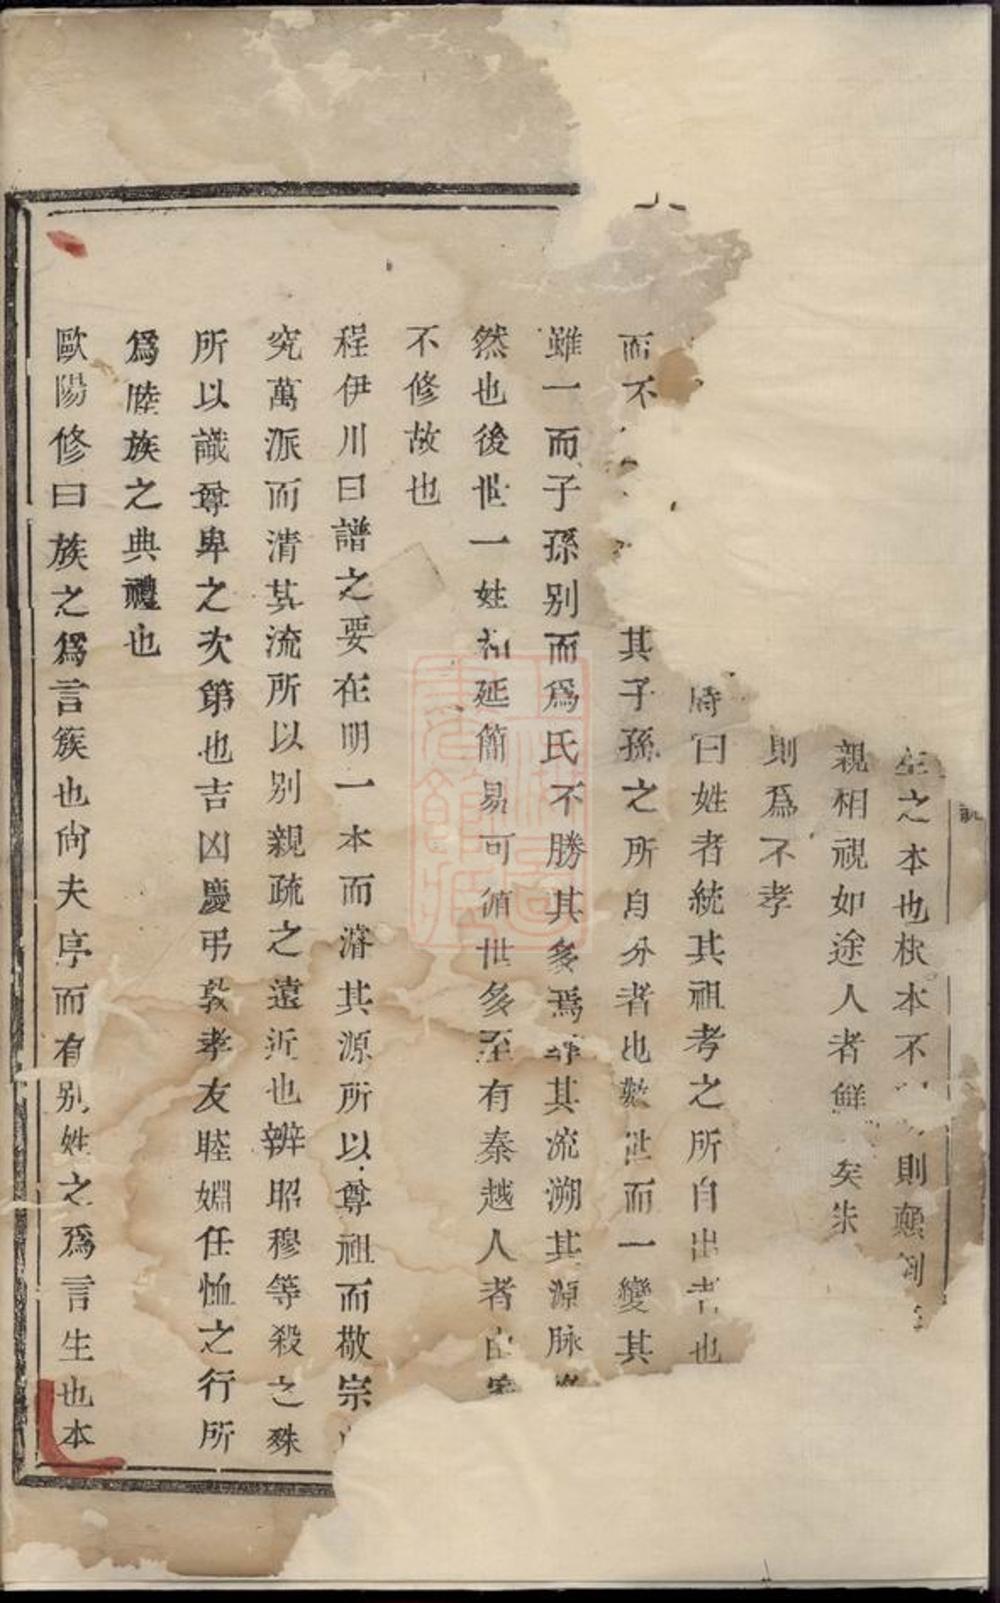 之本也栨本不則顛
親相視如途人者鮮矣朱
則為不孝
時曰姓者統其祖考之所自出者也
而不其子孫之所自分者也數世而一變其
雖一而子孫别而爲氏不勝其多焉其流溯其源脉
然也後世一姓相延簡易可循世多至有秦越人者由
不修故也
程伊川曰譜之要在明一本而濬其源所以尊祖而敬宗
究萬派而清其流所以别親疏之遠近也辨昭穆等殺之殊
所以識尊卑之次第也吉凶慶弔敦孝友睦婣任恤之行所
爲睦族之典禮也
歐陽修曰族之爲言簇也尙夫序而有别姓之爲言生也本